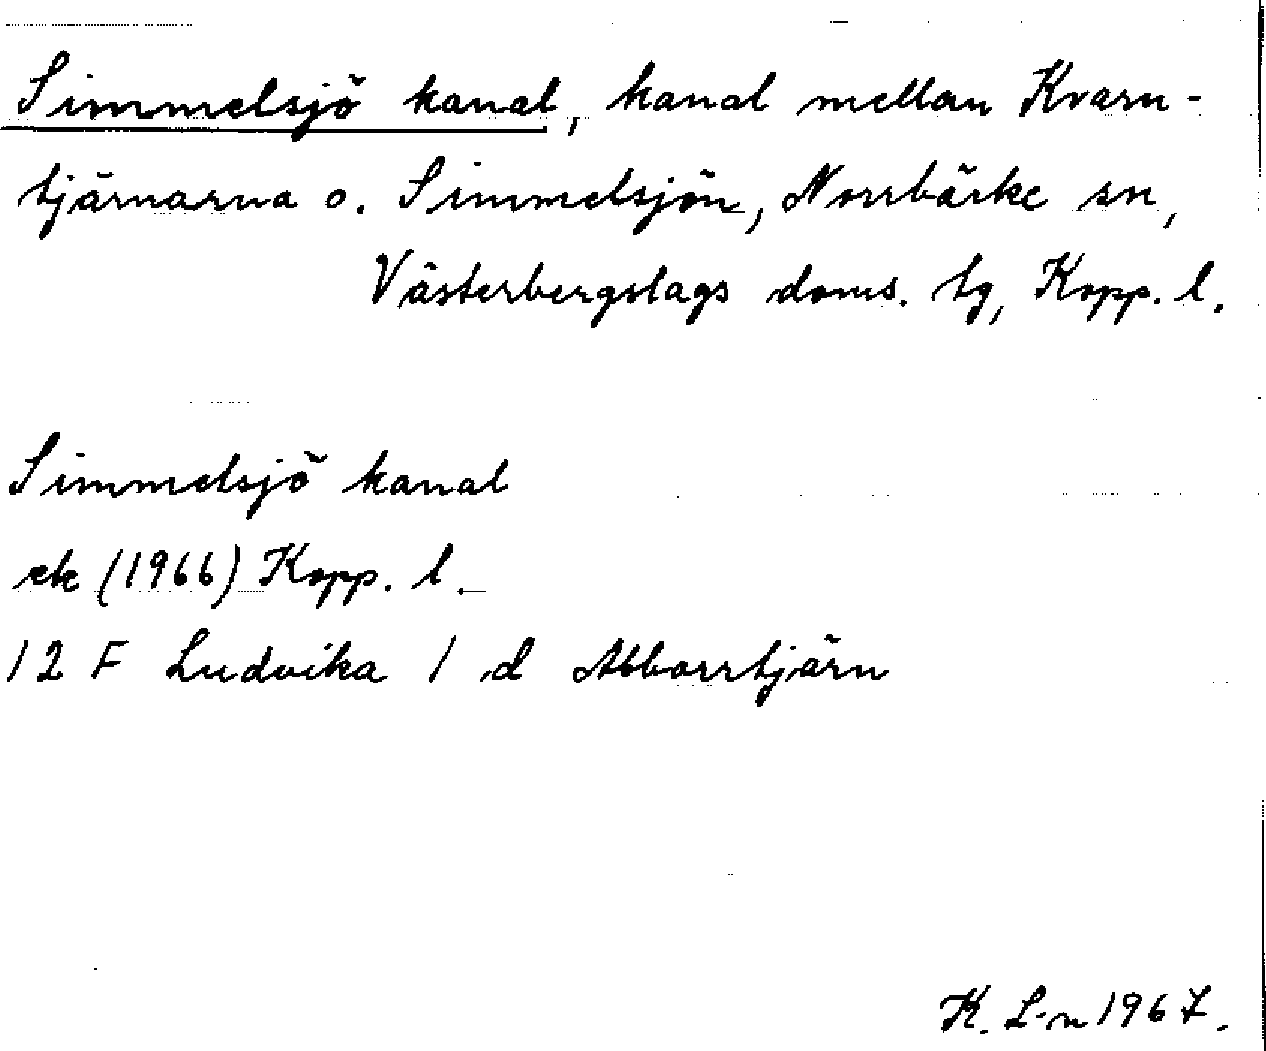 Simmelsjö kanal, kanal mellan Kvarn-
tjärnarna o. Simmelsjön, Norrbärke sn,
Västerbergslags doms. tg, Kopp. l.
Simmelsjö kanal
ek (1966) Kopp. l.
12 F Ludvika 1 d Abborrtjärn
K. L-n 1967.